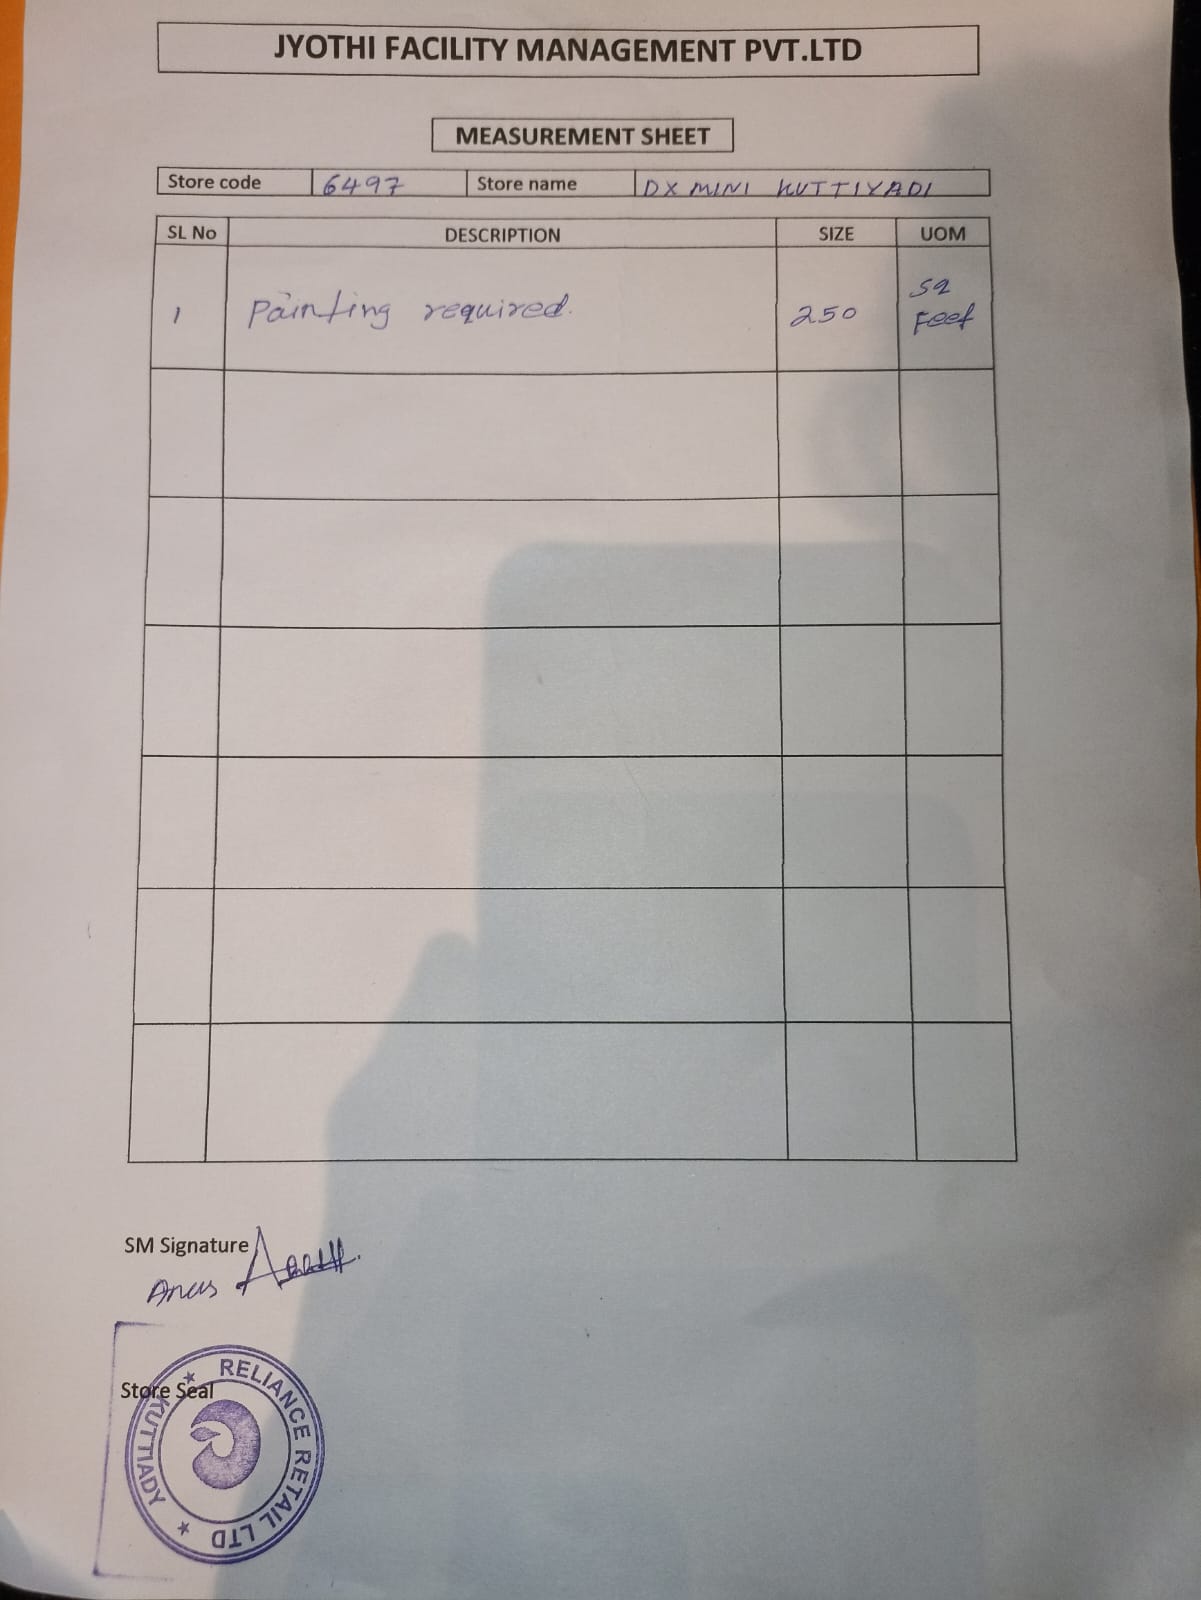 JYOTHI FACILITY MANAGEMENT PVT.LTD
MEASUREMENT SHEET
Store code 6497 Store name DX MINI KUTTIYADI
SL No DESCRIPTION SIZE UOM
1 Painting required. 250 Sq Feet
SM Signature
Anas
Store Seal
RELIANCE RETAIL LTD
KUTTIADY